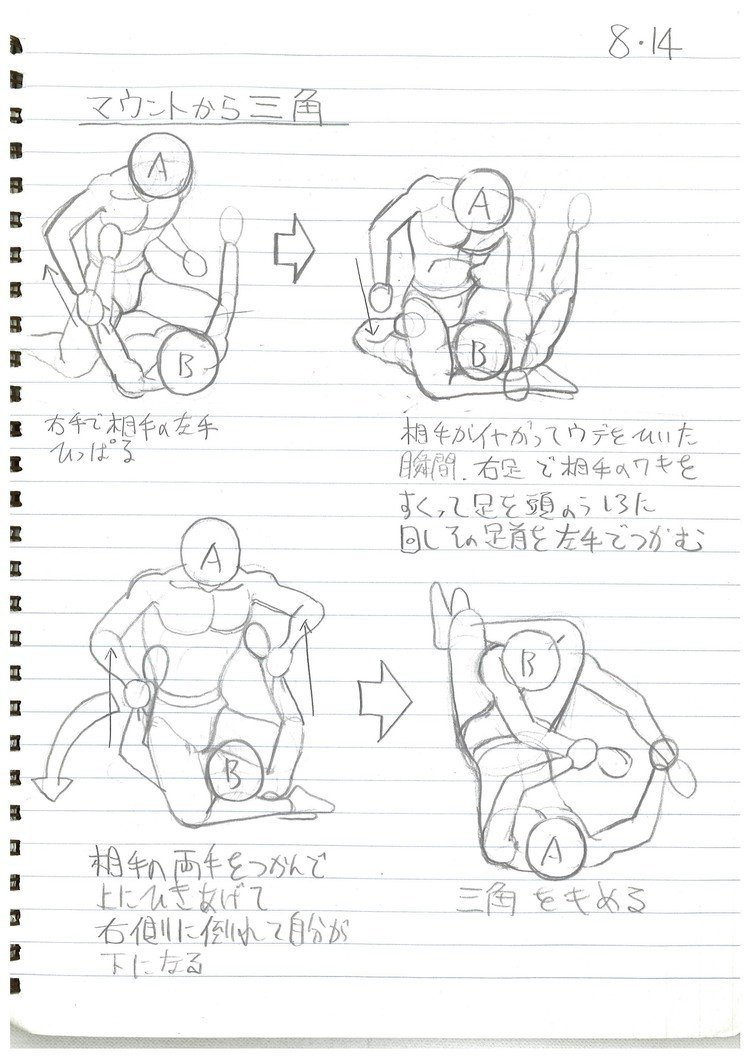 8・14
マウントから三角
A
B
A
B
右手で相手の左手
ひっぱる
相手がイヤがってウデをひいた
瞬間、右足で相手のワキを
すくって足を頭のうしろに
回しその足首を左手でつかむ
A
B
B
A
相手の両手をつかんで
上にひきあげて
右側に倒れて自分が
下になる
三角をきめる